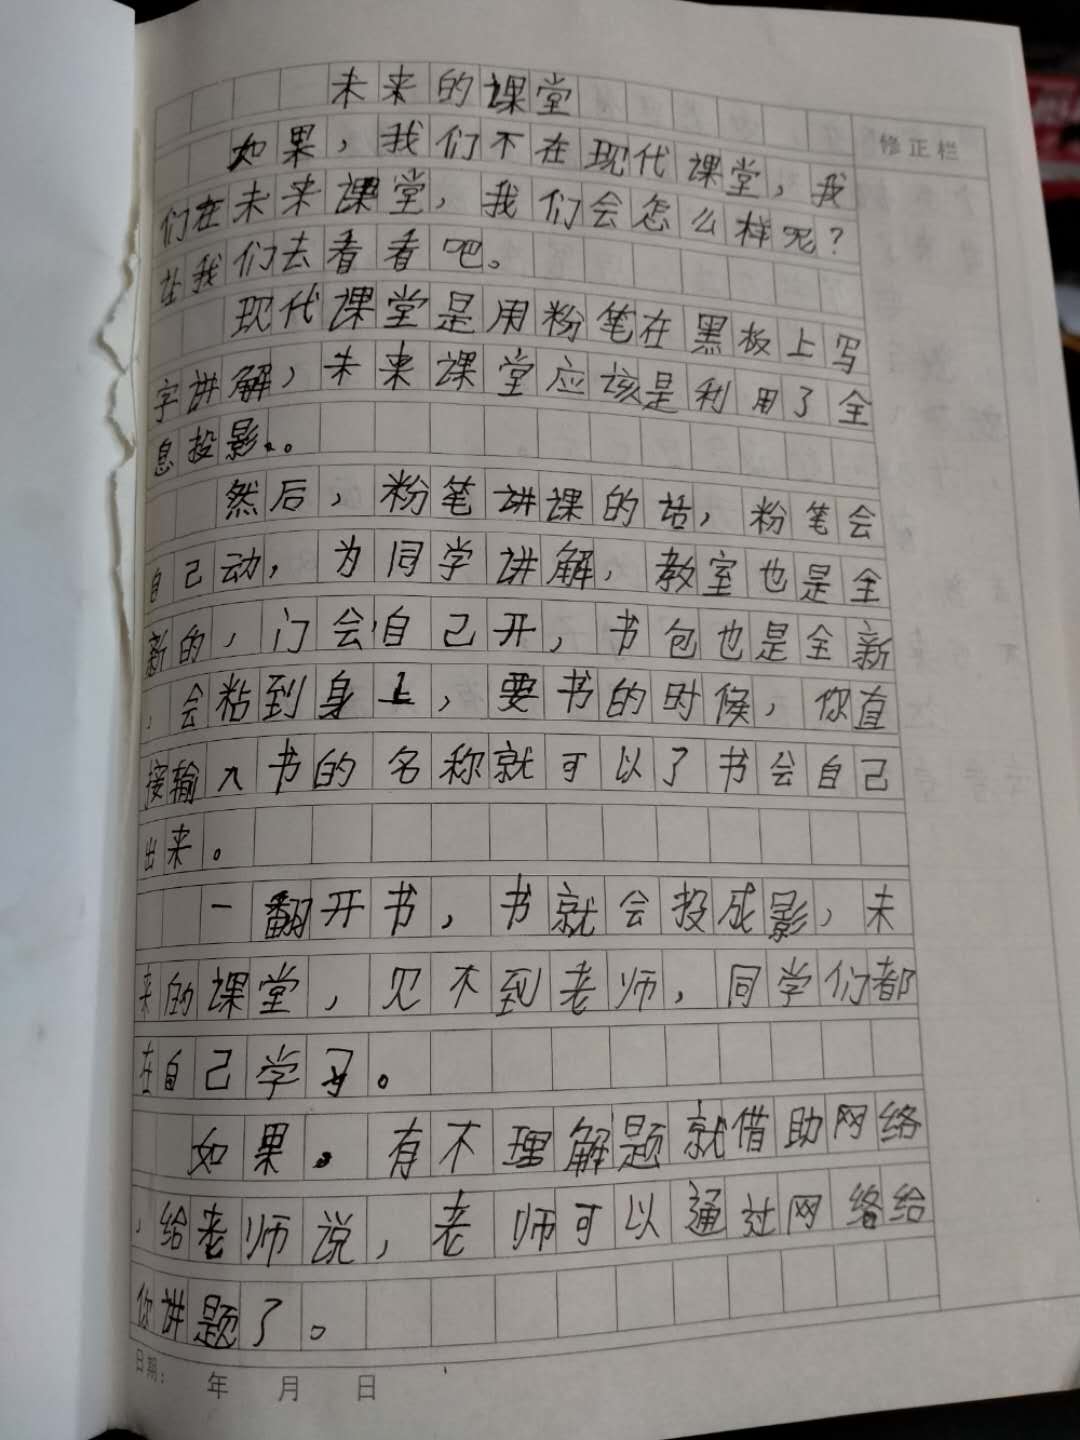 未来的课堂
修正栏
如果，我们不在现代课堂，我
们在未来课堂，我们会怎么样呢？
让我们去看看吧。
现代课堂是用粉笔在黑板上写
字讲解，未来课堂应该是利用了全
息投影。
然后，粉笔讲课的话，粉笔会
自己动，为同学讲解，教室也是全
新的，门会自己开，书包也是全新
，会粘到身上，要书的时候，你直
接输入书的名称就可以了书会自己
出来。
一翻开书，书就会投成影，未
来的课堂，见不到老师，同学们都
在自己学习。
如果。有不理解题就借助网络
，给老师说，老师可以通过网络给
你讲题了。
日期：　年　月　日